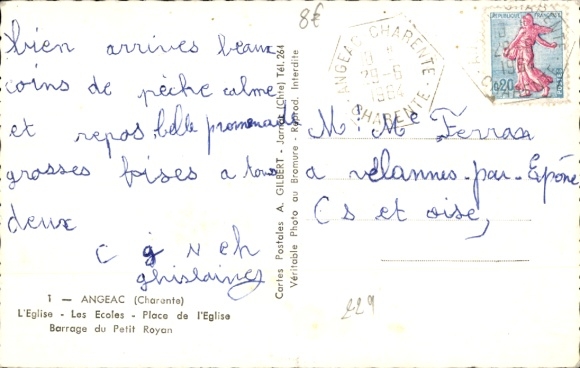 8€
bien arrives beaux
coins de pèche calme
et repos belle promenade
grosses bises a tous
deux
C g N ch
ghislaine
1 — ANGEAC (Charente)
L'Eglise - Les Ecoles - Place de l'Eglise
Barrage du Petit Royan
Cartes Postales A. GILBERT - Jarnac (Chte) Tél. 264
Véritable Photo au Bromure - Reprod. Interdite
ANGEAC CHARENTE
1964
CHARENTE
REPUBLIQUE FRANÇAISE
0,20
M. Me Ferran
a vélannes-par-Epône
C s et oise,
229